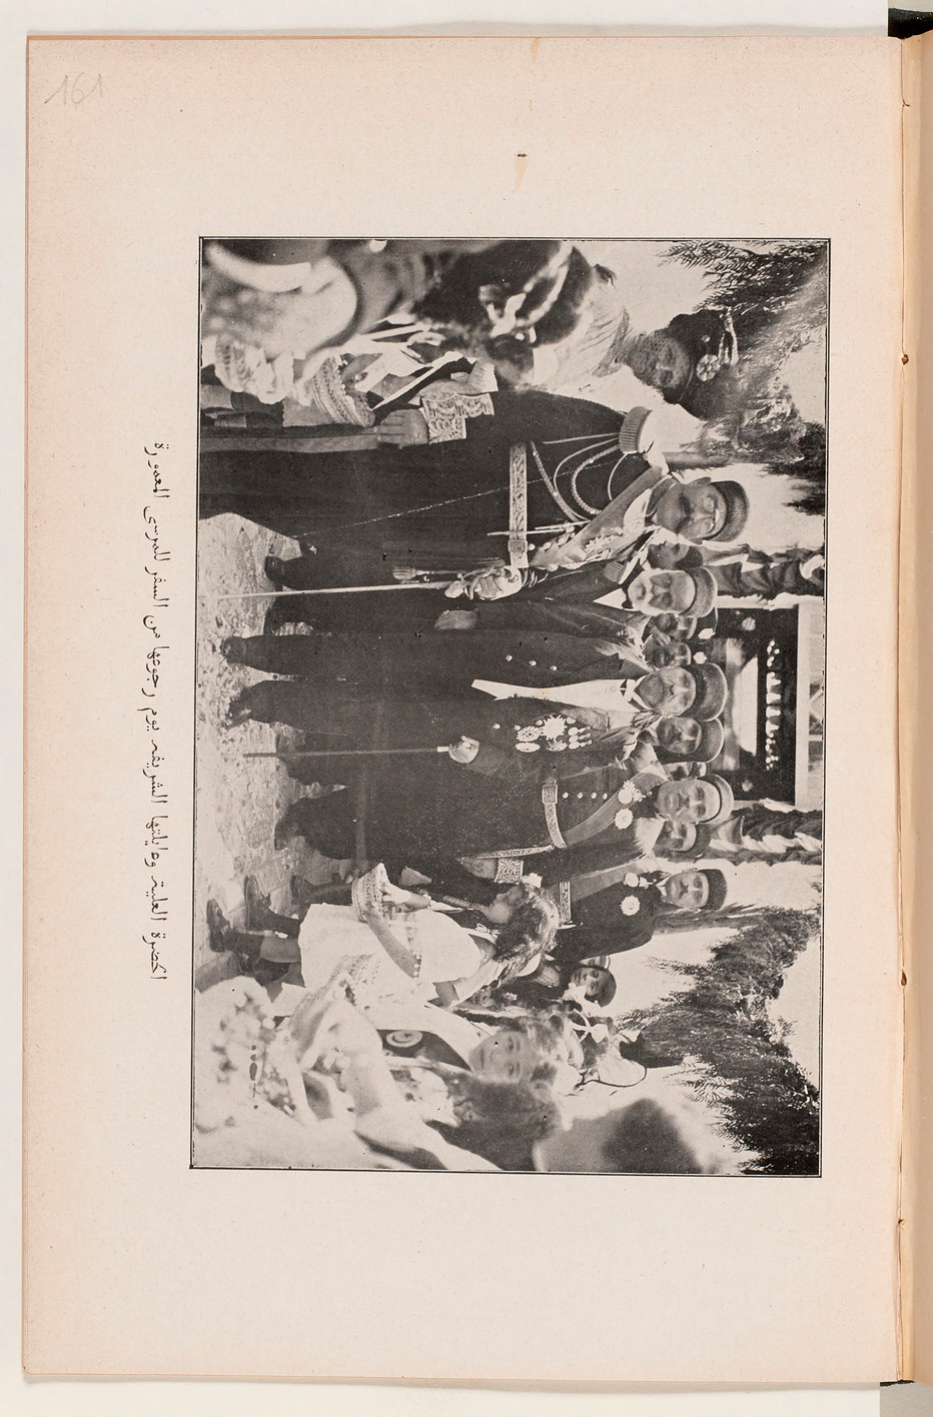 161
الحضرة العلية وعايلتها الشريفه يوم رجوعها من السفر للمرسى المعمورة